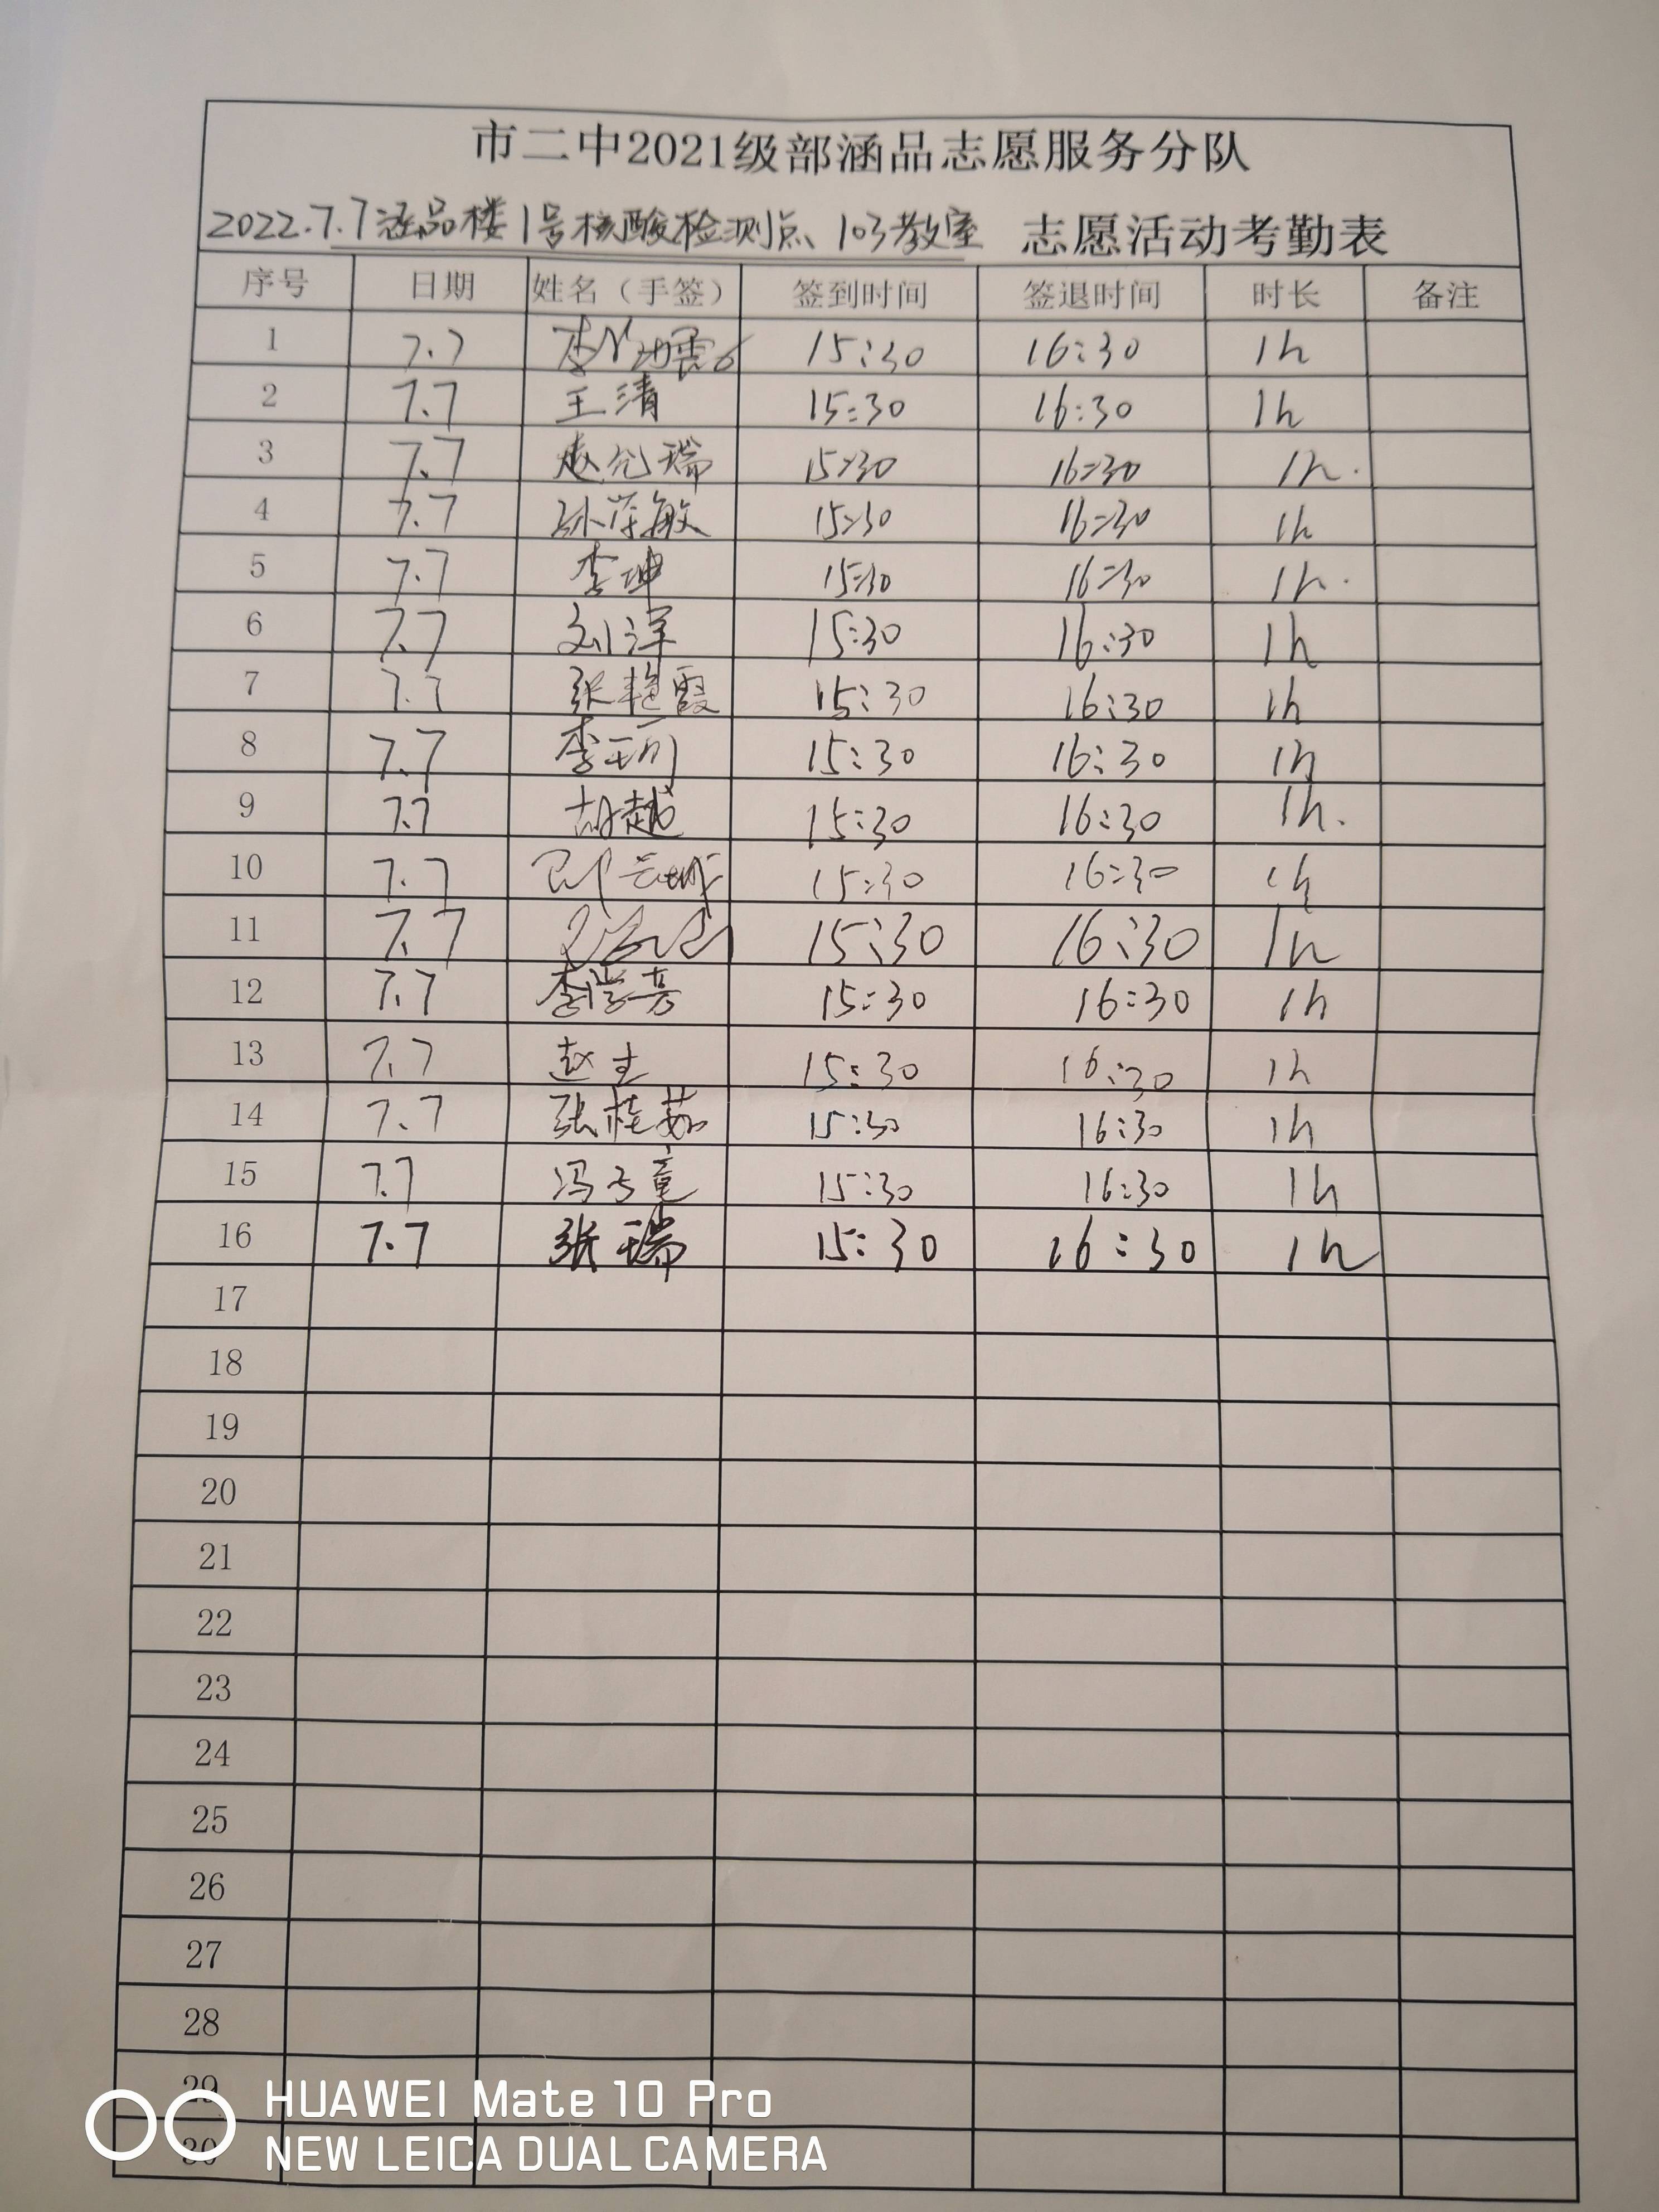 市二中2021级部涵品志愿服务分队
2022.7.7涵品楼1号核酸检测点、103教室 志愿活动考勤表
序号 日期 姓名（手签） 签到时间 签退时间 时长 备注
1 7.7 15:30 16:30 1h
2 7.7 王清 15:30 16:30 1h
3 7.7 赵允瑞 15:30 16:30 1h.
4 7.7 孙萍敏 15:30 16:30 1h
5 7.7 李坤 15:30 16:30 1h.
6 7.7 刘洋 15:30 16:30 1h
7 7.7 张艳霞 15:30 16:30 1h
8 7.7 李珂 15:30 16:30 1h
9 7.7 胡越 15:30 16:30 1h.
10 7.7 15:30 16:30 1h
11 7.7 15:30 16:30 1h
12 7.7 李学芳 15:30 16:30 1h
13 7.7 15:30 16:30 1h
14 7.7 张桂茹 15:30 16:30 1h
15 7.7 15:30 16:30 1h
16 7.7 张瑞 15:30 16:30 1h
17
18
19
20
21
22
23
24
25
26
27
28
29
30
HUAWEI Mate 10 Pro
NEW LEICA DUAL CAMERA